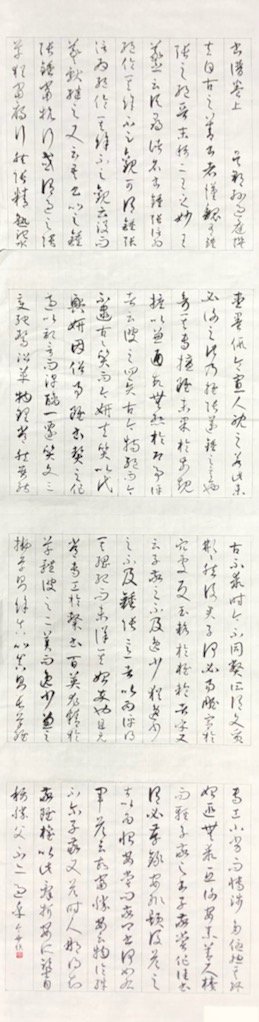 書譜卷上 吳郡孫過庭撰
夫自古之善書者漢魏有鍾
張之絕晉末稱二王之妙王
羲之云頃尋諸名書鍾張信為
絕倫其餘不足觀可謂鍾張
信為絕倫其餘不足觀云沒而
羲獻繼之又云吾書比之鍾
張鍾當抗行或謂過之張
草猶當雁行然張精熟池水
盡墨假令寡人耽之若此未
必謝之此乃推張邁鍾之意
也考其專擅雖未果於前規
摭以兼通故無慚於即事評
者云彼之四賢古今特絕而今
不逮古古質而今妍夫質以代
興妍因俗易雖書契之作
適以記言而淳醨一遷質文三
變馳騖沿革物理常然貴能
古不乖時今不同弊所謂文質
彬彬然後君子何必易雕宮於
穴處反玉輅於椎輪者乎又
云子敬之不及逸少猶逸少
之不及鍾張意者以為評得
其綱紀而未詳其始卒也且元
常專工於隸書百英尤精於
草體彼之二美而逸少兼之
擬草則餘真比真則長草雖
專工小劣而博涉多優總其終
始匪無乖互謝安素善尺牘
而輕子敬之書子敬嘗作佳書
與之謂必存錄安輒題後答之
甚以為恨安嘗問敬卿書何如
右軍答云故當勝安云物論殊
不爾子敬又答時人那得知
敬雖權以此辭折安所鑒自
稱勝父不亦過乎